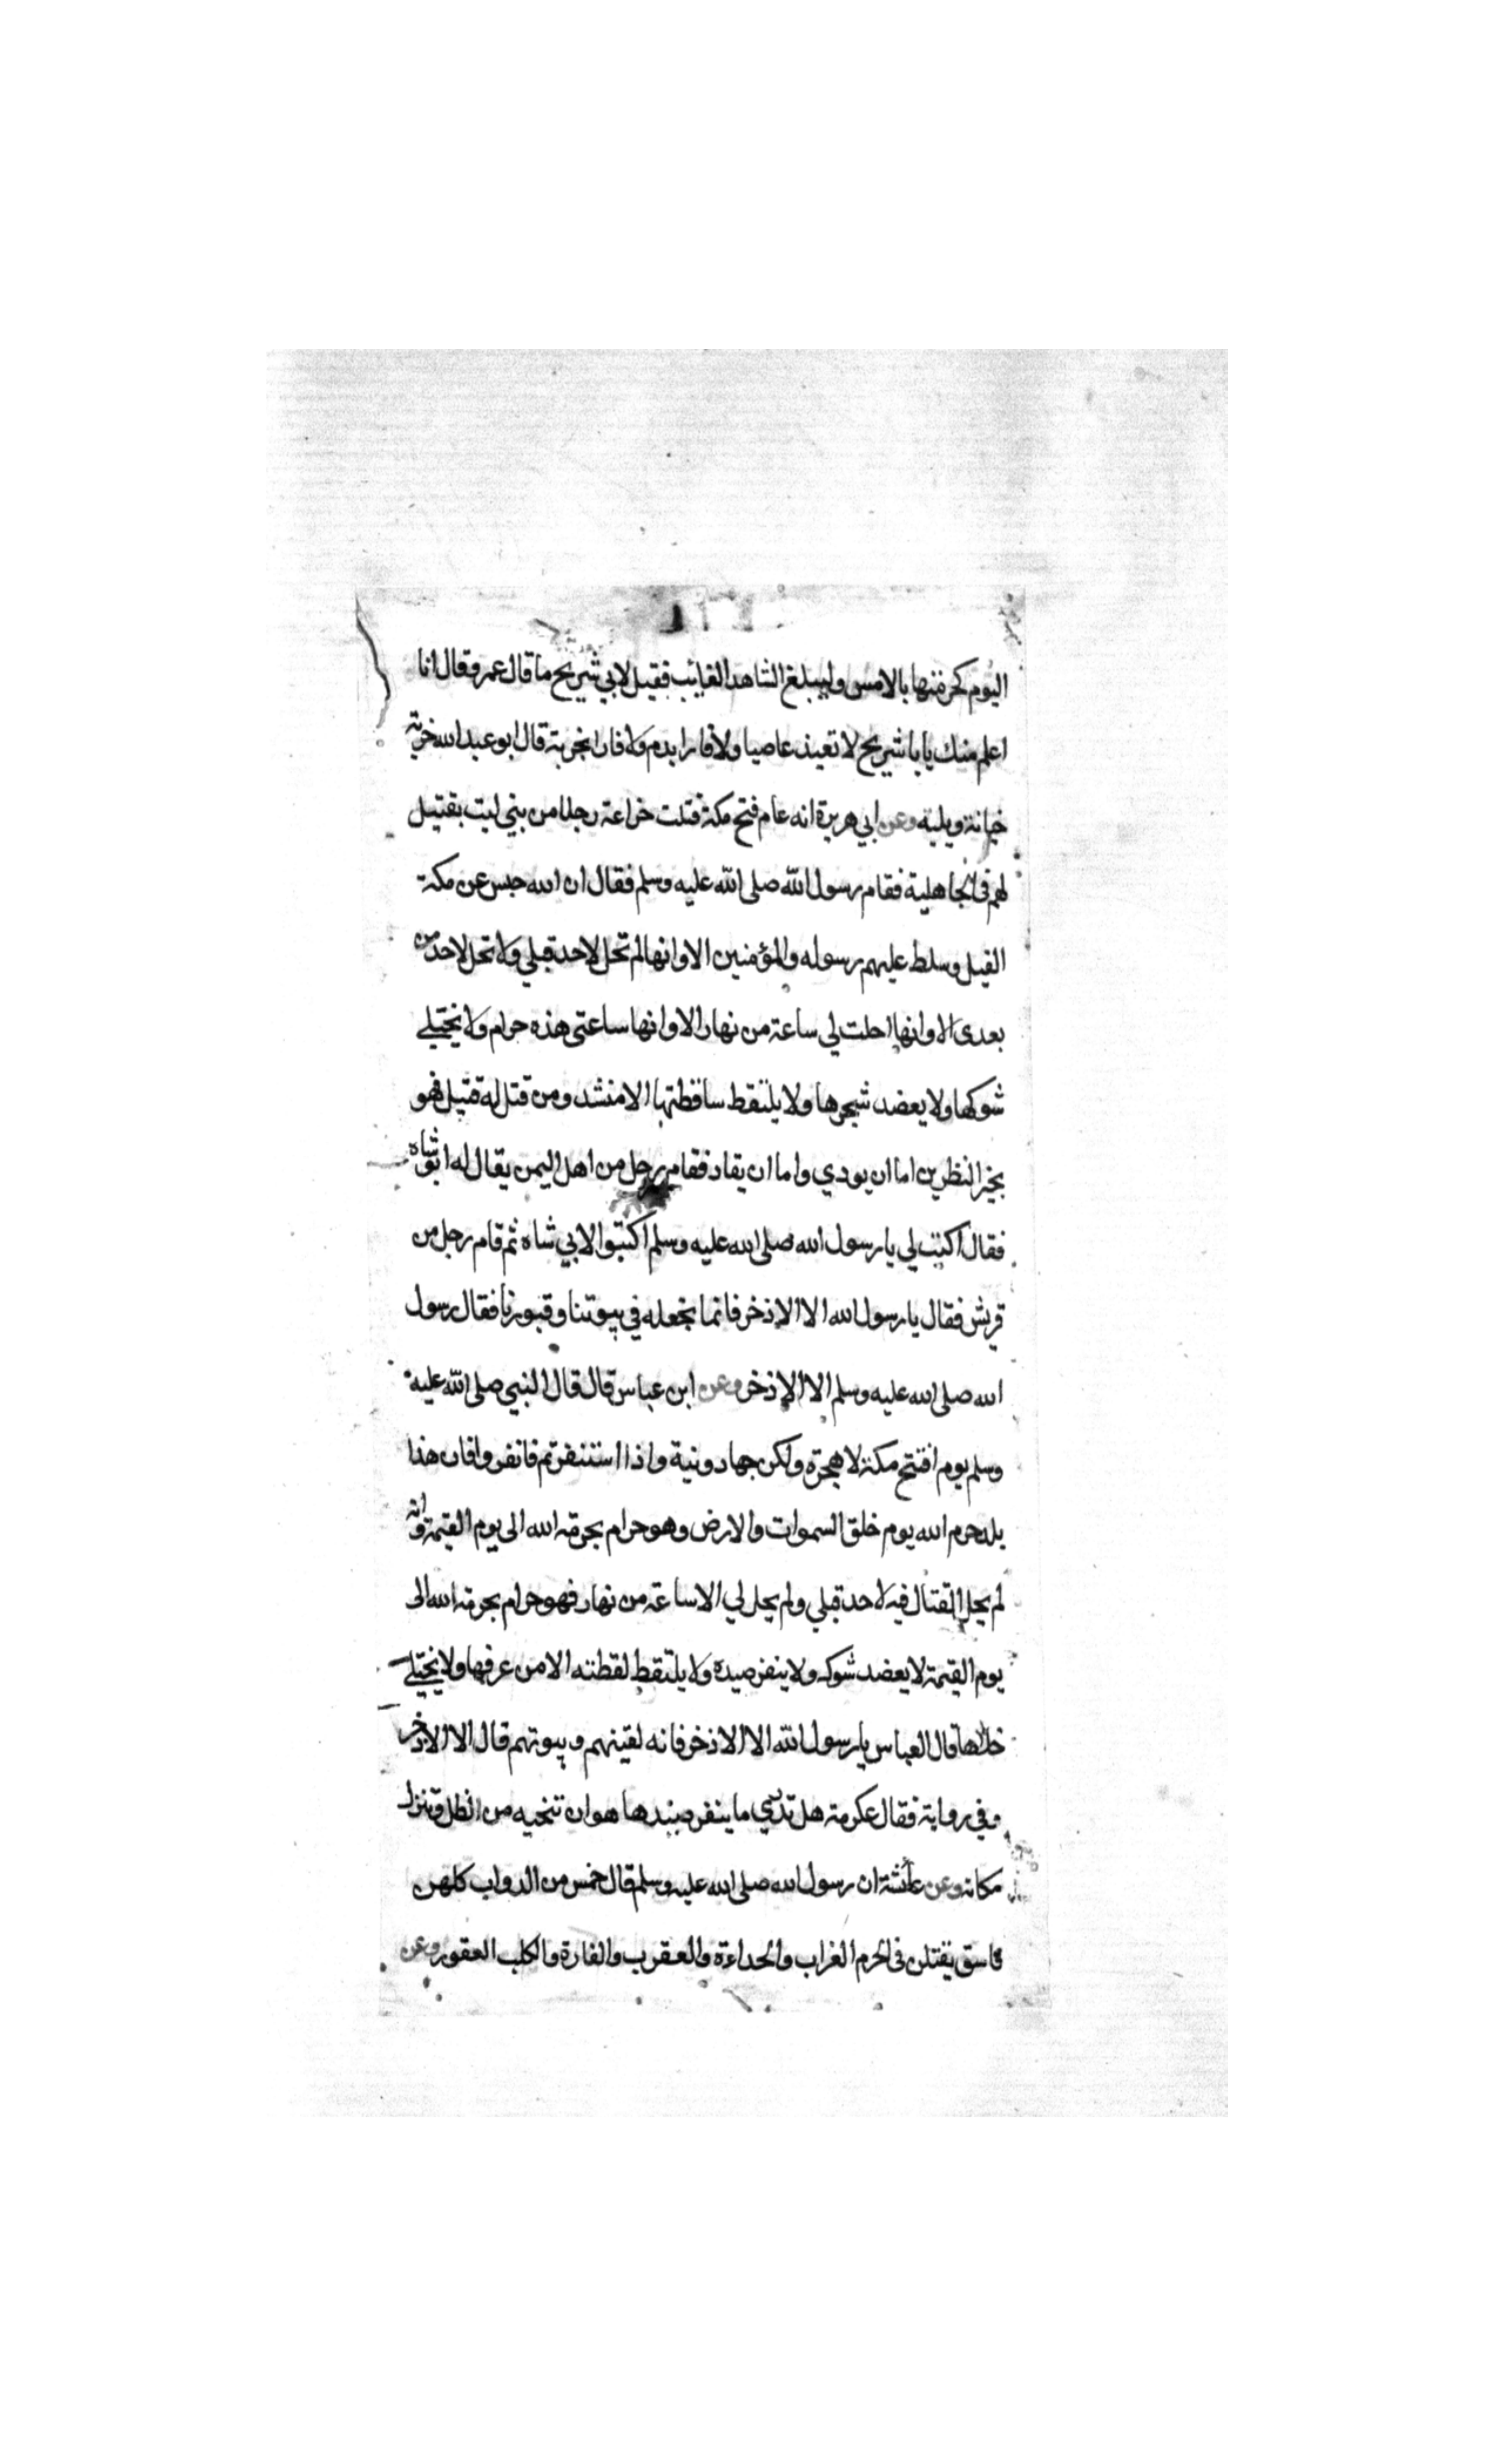 اليوم كحرمتها بالامس وليبلغ الشاهد الغايب فقيل لابي شريح ما قال عمر وقال انا
اعلم منك يا با شريح لا تعيذ عاصيا ولا فارا بدم ولا فارا بخربة قال ابو عبد الله خربة
خيانة وبلية وعن ابي هريرة انه عام فتح مكة قتلت خزاعة رجلا من بني ليث بقتيل
لهم في الجاهلية فقام رسول الله صلى الله عليه وسلم فقال ان الله حبس عن مكة
الفيل وسلط عليهم رسوله والمؤمنين الا وانها لم تحل لاحد قبلي ولا تحل لاحد من
بعدى الا وانها احلت لي ساعة من نهار الا وانها ساعتى هذه حرام ولا يختلي
شوكها ولا يعضد شجرها ولا يلتقط ساقطتها الا منشد ومن قتل له قتيل فهو
بخير النظرين اما ان يودي واما ان يقاد فقام رجل من اهل اليمن يقال له ابو شاه
فقال اكتب لي يا رسول الله صلى الله عليه وسلم اكتبوا لابي شاه ثم قام رجل من
قريش فقال يا رسول الله الا الاذخر فانما نجعله في بيوتنا وقبورنا فقال رسول
الله صلى الله عليه وسلم الا الاذخر وعن ابن عباس قال قال النبي صلى الله عليه
وسلم يوم افتتح مكة لا هجرة ولكن جهاد ونية واذا استنفرتم فانفروا فان هذا
بلد حرم الله يوم خلق السموات والارض وهو حرام بحرمة الله الى يوم القيمة وانه
لم يحل القتال فيه لاحد قبلي ولم يحل لي الا ساعة من نهار فهو حرام بحرمة الله الى
يوم القيمة لا يعضد شوكه ولا ينفر صيده ولا يلتقط لقطته الا من عرفها ولا يختلي
خلاها قال العباس يا رسول الله الا الاذخر فانه لقينهم وبيوتهم قال الا الاذخر
وفي رواية فقال عكرمة هل تدري ما ينفر صيدها هو ان تنحيه من الظل وتنزل
مكانه وعن عائشة ان رسول الله صلى الله عليه وسلم قال خمس من الدواب كلهن
فاسق يقتلن في الحرم الغراب والحداءة والعقرب والفارة والكلب العقور وعن